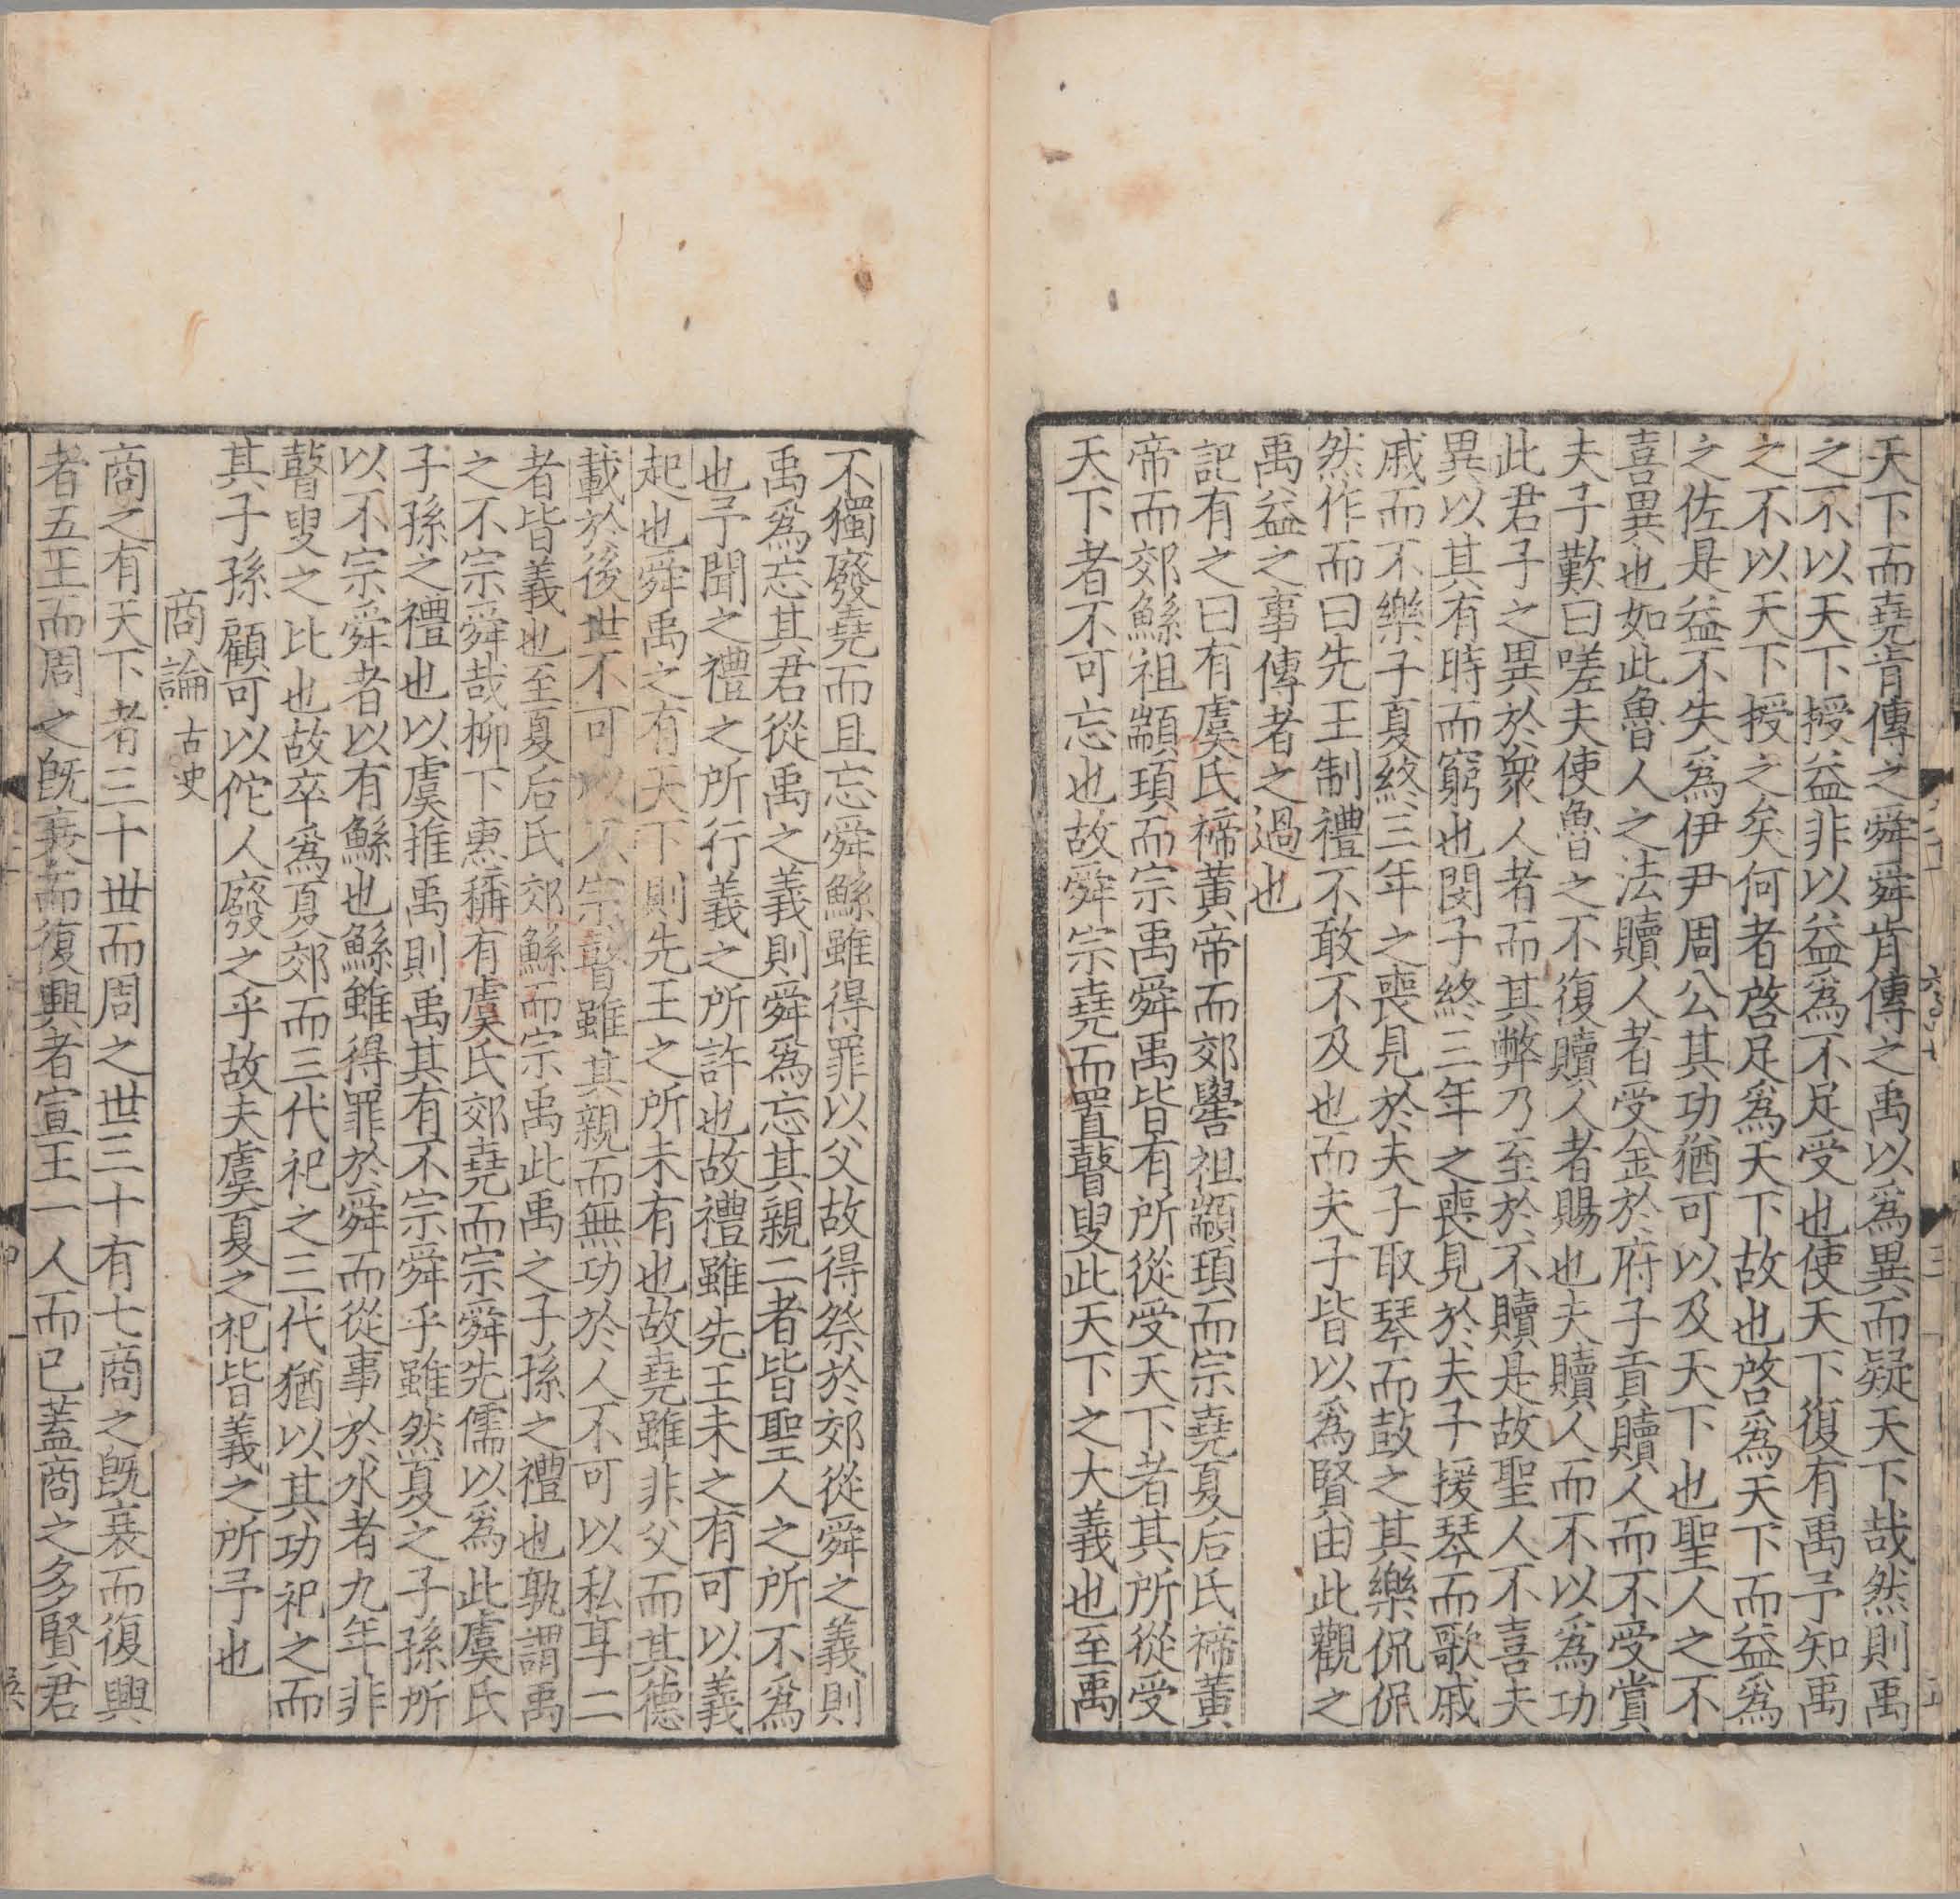 天下而堯肯傳之舜舜肯傳之禹以爲異而疑天下哉然則禹
之不以天下授益非以益爲不足受也使天下復有禹予知禹
之不以天下授之矣何者啓足爲天下故也啓爲天下而益爲
之佐是益不失爲伊尹周公其功猶可以及天下也聖人之不
喜異也如此魯人之法贖人者受金於府子貢贖人而不受賞
夫子歎曰嗟夫使魯之不復贖人者賜也夫贖人而不以爲功
此君子之異於衆人者而其弊乃至於不贖是故聖人不喜夫
異以其有時而窮也閔子終三年之喪見於夫子援琴而歌戚
戚而不樂子夏終三年之喪見於夫子取琴而鼓之其樂侃侃
然作而曰先王制禮不敢不及也而夫子皆以爲賢由此觀之
禹益之事傳者之過也
記有之曰有虞氏禘黃帝而郊嚳祖顓頊而宗堯夏后氏禘黃
帝而郊鯀祖顓頊而宗禹舜禹皆有所從受天下者其所從受
天下者不可忘也故舜宗堯而置瞽叟此天下之大義也至禹
不獨廢堯而且忘舜鯀雖得罪以父故得祭於郊從舜之義則
禹爲忘其君從禹之義則舜爲忘其親二者皆聖人之所不爲
也予聞之禮之所行義之所許也故禮雖先王未之有可以義
起也舜禹之有天下則先王之所未有也故堯雖非父而其德
載於後世不可以不宗瞽雖其親而無功於人不可以私享二
者皆義也至夏后氏郊鯀而宗禹此禹之子孫之禮也孰謂禹
之不宗舜哉柳下惠稱有虞氏郊堯而宗舜先儒以爲此虞氏
子孫之禮也以虞推禹則禹其有不宗舜乎雖然夏之子孫所
以不宗舜者以有鯀也鯀雖得罪於舜而從事於水者九年非
瞽叟之比也故卒爲夏郊而三代祀之三代猶以其功祀之而
其子孫顧可以佗人廢之乎故夫虞夏之祀皆義之所予也
商論 古史
商之有天下者三十世而周之世三十有七商之旣衰而復興
者五王而周之旣衰而復興者宣王一人而已蓋商之多賢君